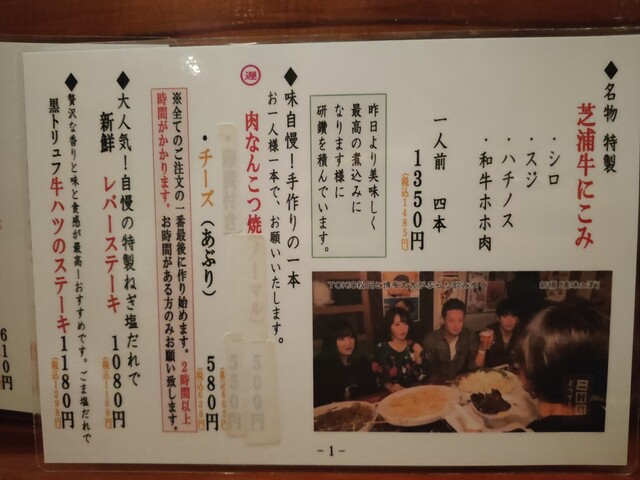 ◆名物 特製
芝浦牛にこみ
・シロ
・スジ
・ハチノス
・和牛ホホ肉
一人前 四本
1350円
(税込1485円)
昨日より美味しく
最高の煮込みに
なります様に
研鑽を積んでいます。
◆味自慢！手作りの一本
お一人様一本で、お願いいたします。
遅 肉なんこつ焼
・チーズ（あぶり） 580円
(税込638円)
※全てのご注文の一番最後に作り始めます。2時間以上
時間がかかります。お時間がある方のみお願い致します。
◆大人気！自慢の特製ねぎ塩だれで
新鮮 レバーステーキ 1080円
(税込1188円)
◆贅沢な香りと味と食感が最高！おすすめです。ごま塩だれで
黒トリュフ牛ハツのステーキ 1180円
(税込1298円)
610円
- 1 -